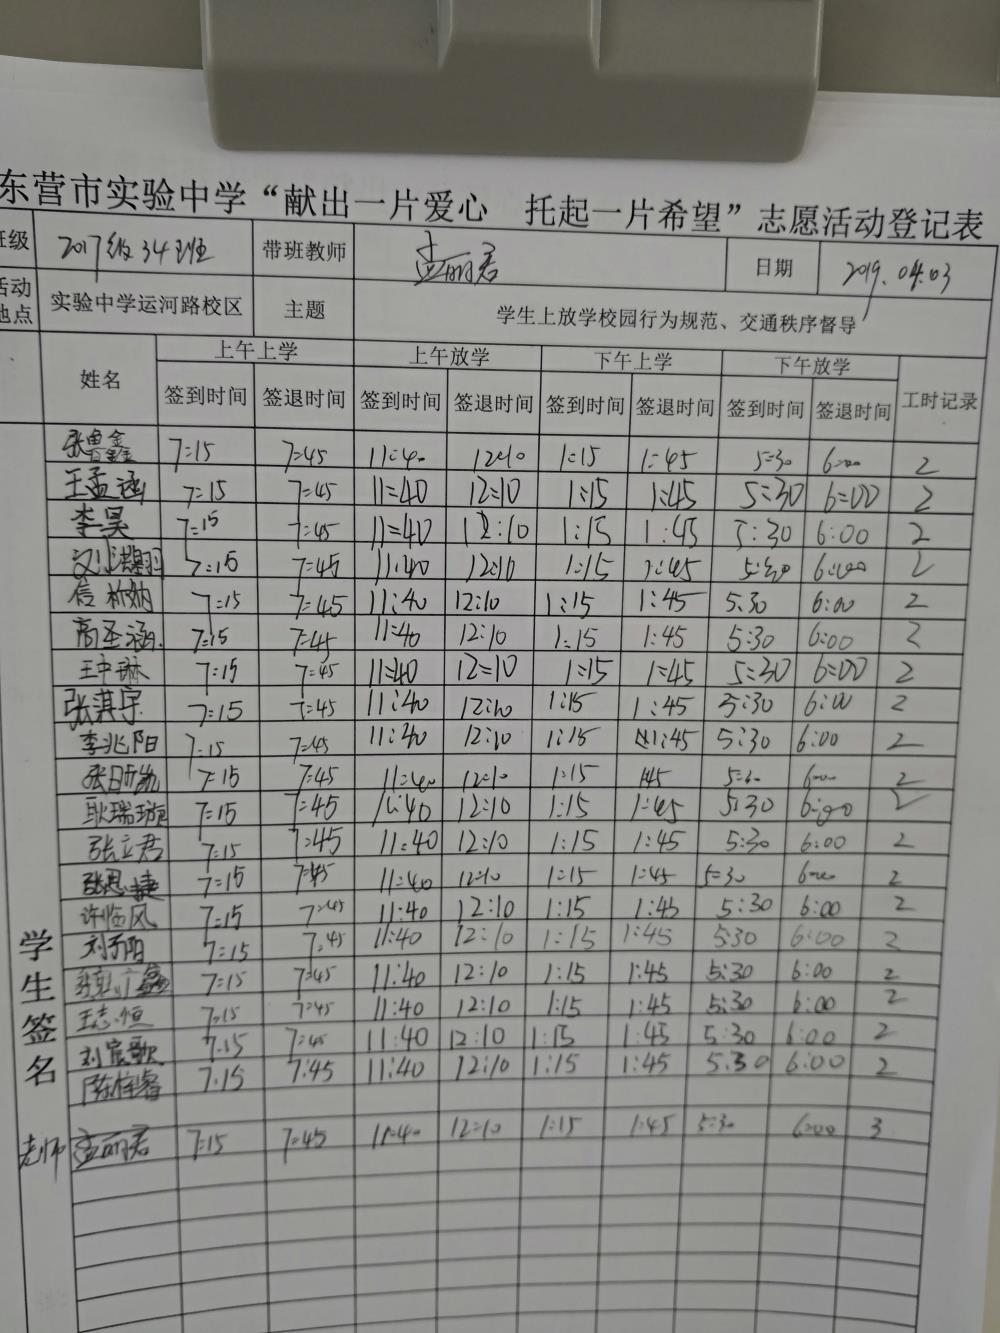 东营市实验中学“献出一片爱心 托起一片希望”志愿活动登记表
班级 2017级34班 带班教师 孟丽君 日期 2019.04.03
活动地点 实验中学运河路校区 主题 学生上放学校园行为规范、交通秩序督导
姓名 上午上学 上午放学 下午上学 下午放学 工时记录
签到时间 签退时间 签到时间 签退时间 签到时间 签退时间 签到时间 签退时间
学生签名
7:15 7:45 11:40 12:10 1:15 1:45 5:30 6:00 2
王孟涵 7:15 7:45 11:40 12:10 1:15 1:45 5:30 6:00 2
李昊 7:15 7:45 11:40 12:10 1:15 1:45 5:30 6:00 2
7:15 7:45 11:40 12:10 1:15 1:45 5:30 6:00 2
7:15 7:45 11:40 12:10 1:15 1:45 5:30 6:00 2
高圣涵 7:15 7:45 11:40 12:10 1:15 1:45 5:30 6:00 2
王中琳 7:15 7:45 11:40 12:10 1:15 1:45 5:30 6:00 2
张淇宇 7:15 7:45 11:40 12:10 1:15 1:45 5:30 6:00 2
李兆阳 7:15 7:45 11:40 12:10 1:15 1:45 5:30 6:00 2
7:15 7:45 11:40 12:10 1:15 1:45 5:30 6:00 2
耿瑞璇 7:15 7:45 11:40 12:10 1:15 1:45 5:30 6:00 2
张立君 7:15 7:45 11:40 12:10 1:15 1:45 5:30 6:00 2
张思捷 7:15 7:45 11:40 12:10 1:15 1:45 5:30 6:00 2
许临风 7:15 7:45 11:40 12:10 1:15 1:45 5:30 6:00 2
刘子阳 7:15 7:45 11:40 12:10 1:15 1:45 5:30 6:00 2
7:15 7:45 11:40 12:10 1:15 1:45 5:30 6:00 2
王志恒 7:15 7:45 11:40 12:10 1:15 1:45 5:30 6:00 2
刘宸歌 7:15 7:45 11:40 12:10 1:15 1:45 5:30 6:00 2
陈梓睿 7:15 7:45 11:40 12:10 1:15 1:45 5:30 6:00 2
老师 孟丽君 7:15 7:45 11:40 12:10 1:15 1:45 5:30 6:00 3